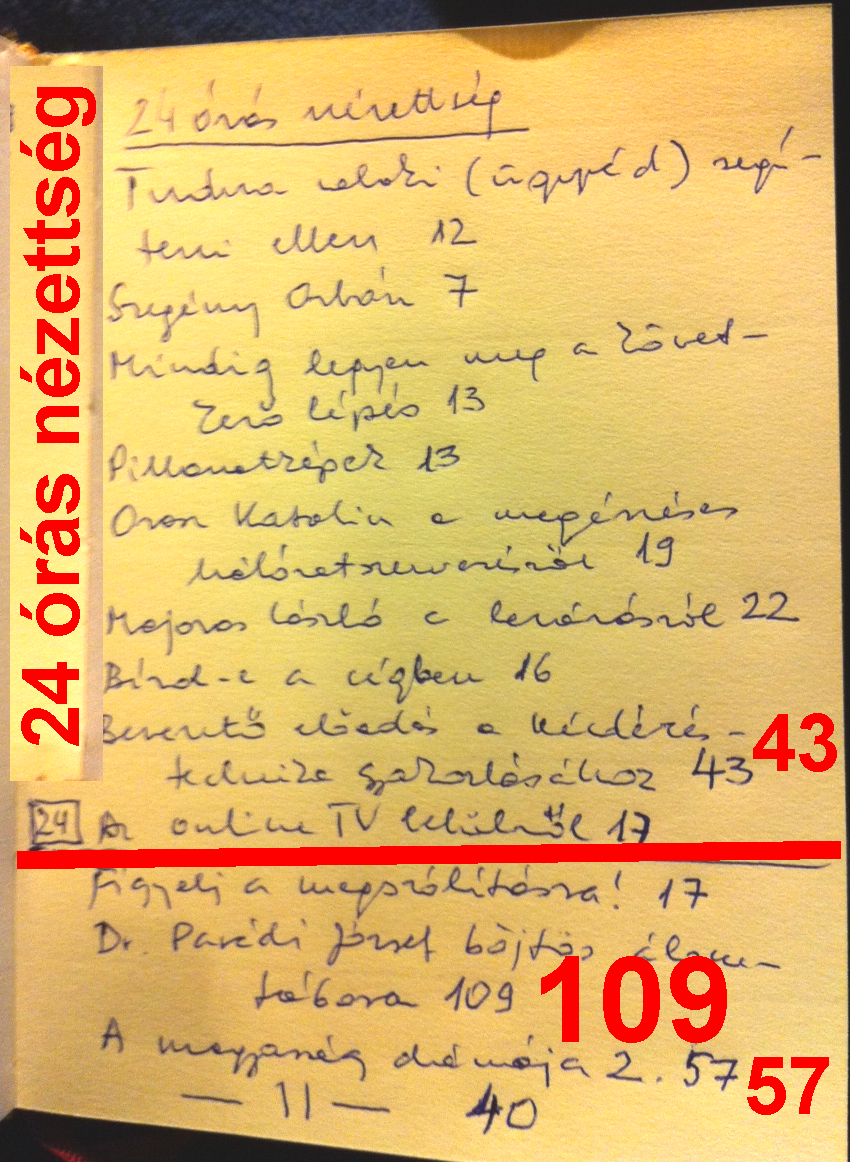 24 órás nézettség
24 órás nézettség
Tudna valaki (ügyvéd) segí-
teni ellen 12
Szegény Orbán 7
Mindig legyen meg a követ-
kező lépés 13
Pillanatképek 13
Oron Katalin a megérzéses
hálózatszervezésről 19
Majoros László a lezárásról 22
Bízd-e a cégben 16
Bevezető előadás a kérdezés-
technika gyakorlásához 43
43
24 Az online TV lelkéről 17
Figyelj a megszólításra! 17
Dr. Parádi József böjtös élem-
tábora 109
109
A magyarság drámája 2. 57
57
— 11 — 40